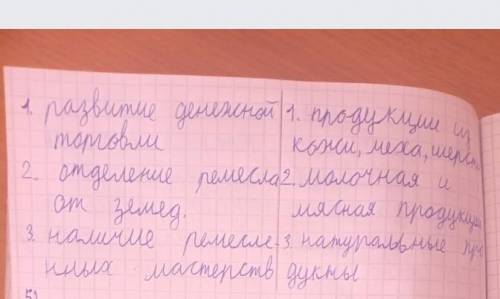 1. развитие денежной
торговли
2. отделение ремесла
от землед.
3. наличие ремесле-
нных мастерств
1. продукции из
кожи, меха, шерсти
2. молочная и
мясная продукция
3. натуральные про
дукты
5)